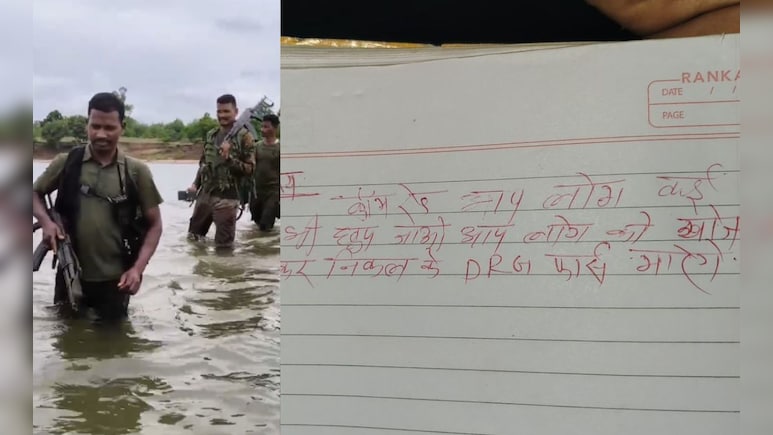 RANKA
DATE / /
PAGE
कॉम रेड आप लोग कई
भी छुप जाओ आप लोग को खोज
कर निकल के DRG फार्स मारेगे